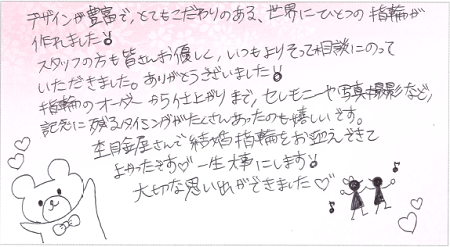 デザインが豊富で、とてもこだわりのある、世界にひとつの指輪が
作れました!
スタッフの方も皆さんお優しく、いつもよりそって相談にのって
いただきました。ありがとうございました!
指輪のオーダーから仕上がりまで、セレモニーや写真撮影など、
記念に残るタイミングがたくさんあったのも嬉しいです。
杢目金屋さんで結婚指輪をお迎えできて
よかったです♡一生大事にします!
大切な思い出ができました♡